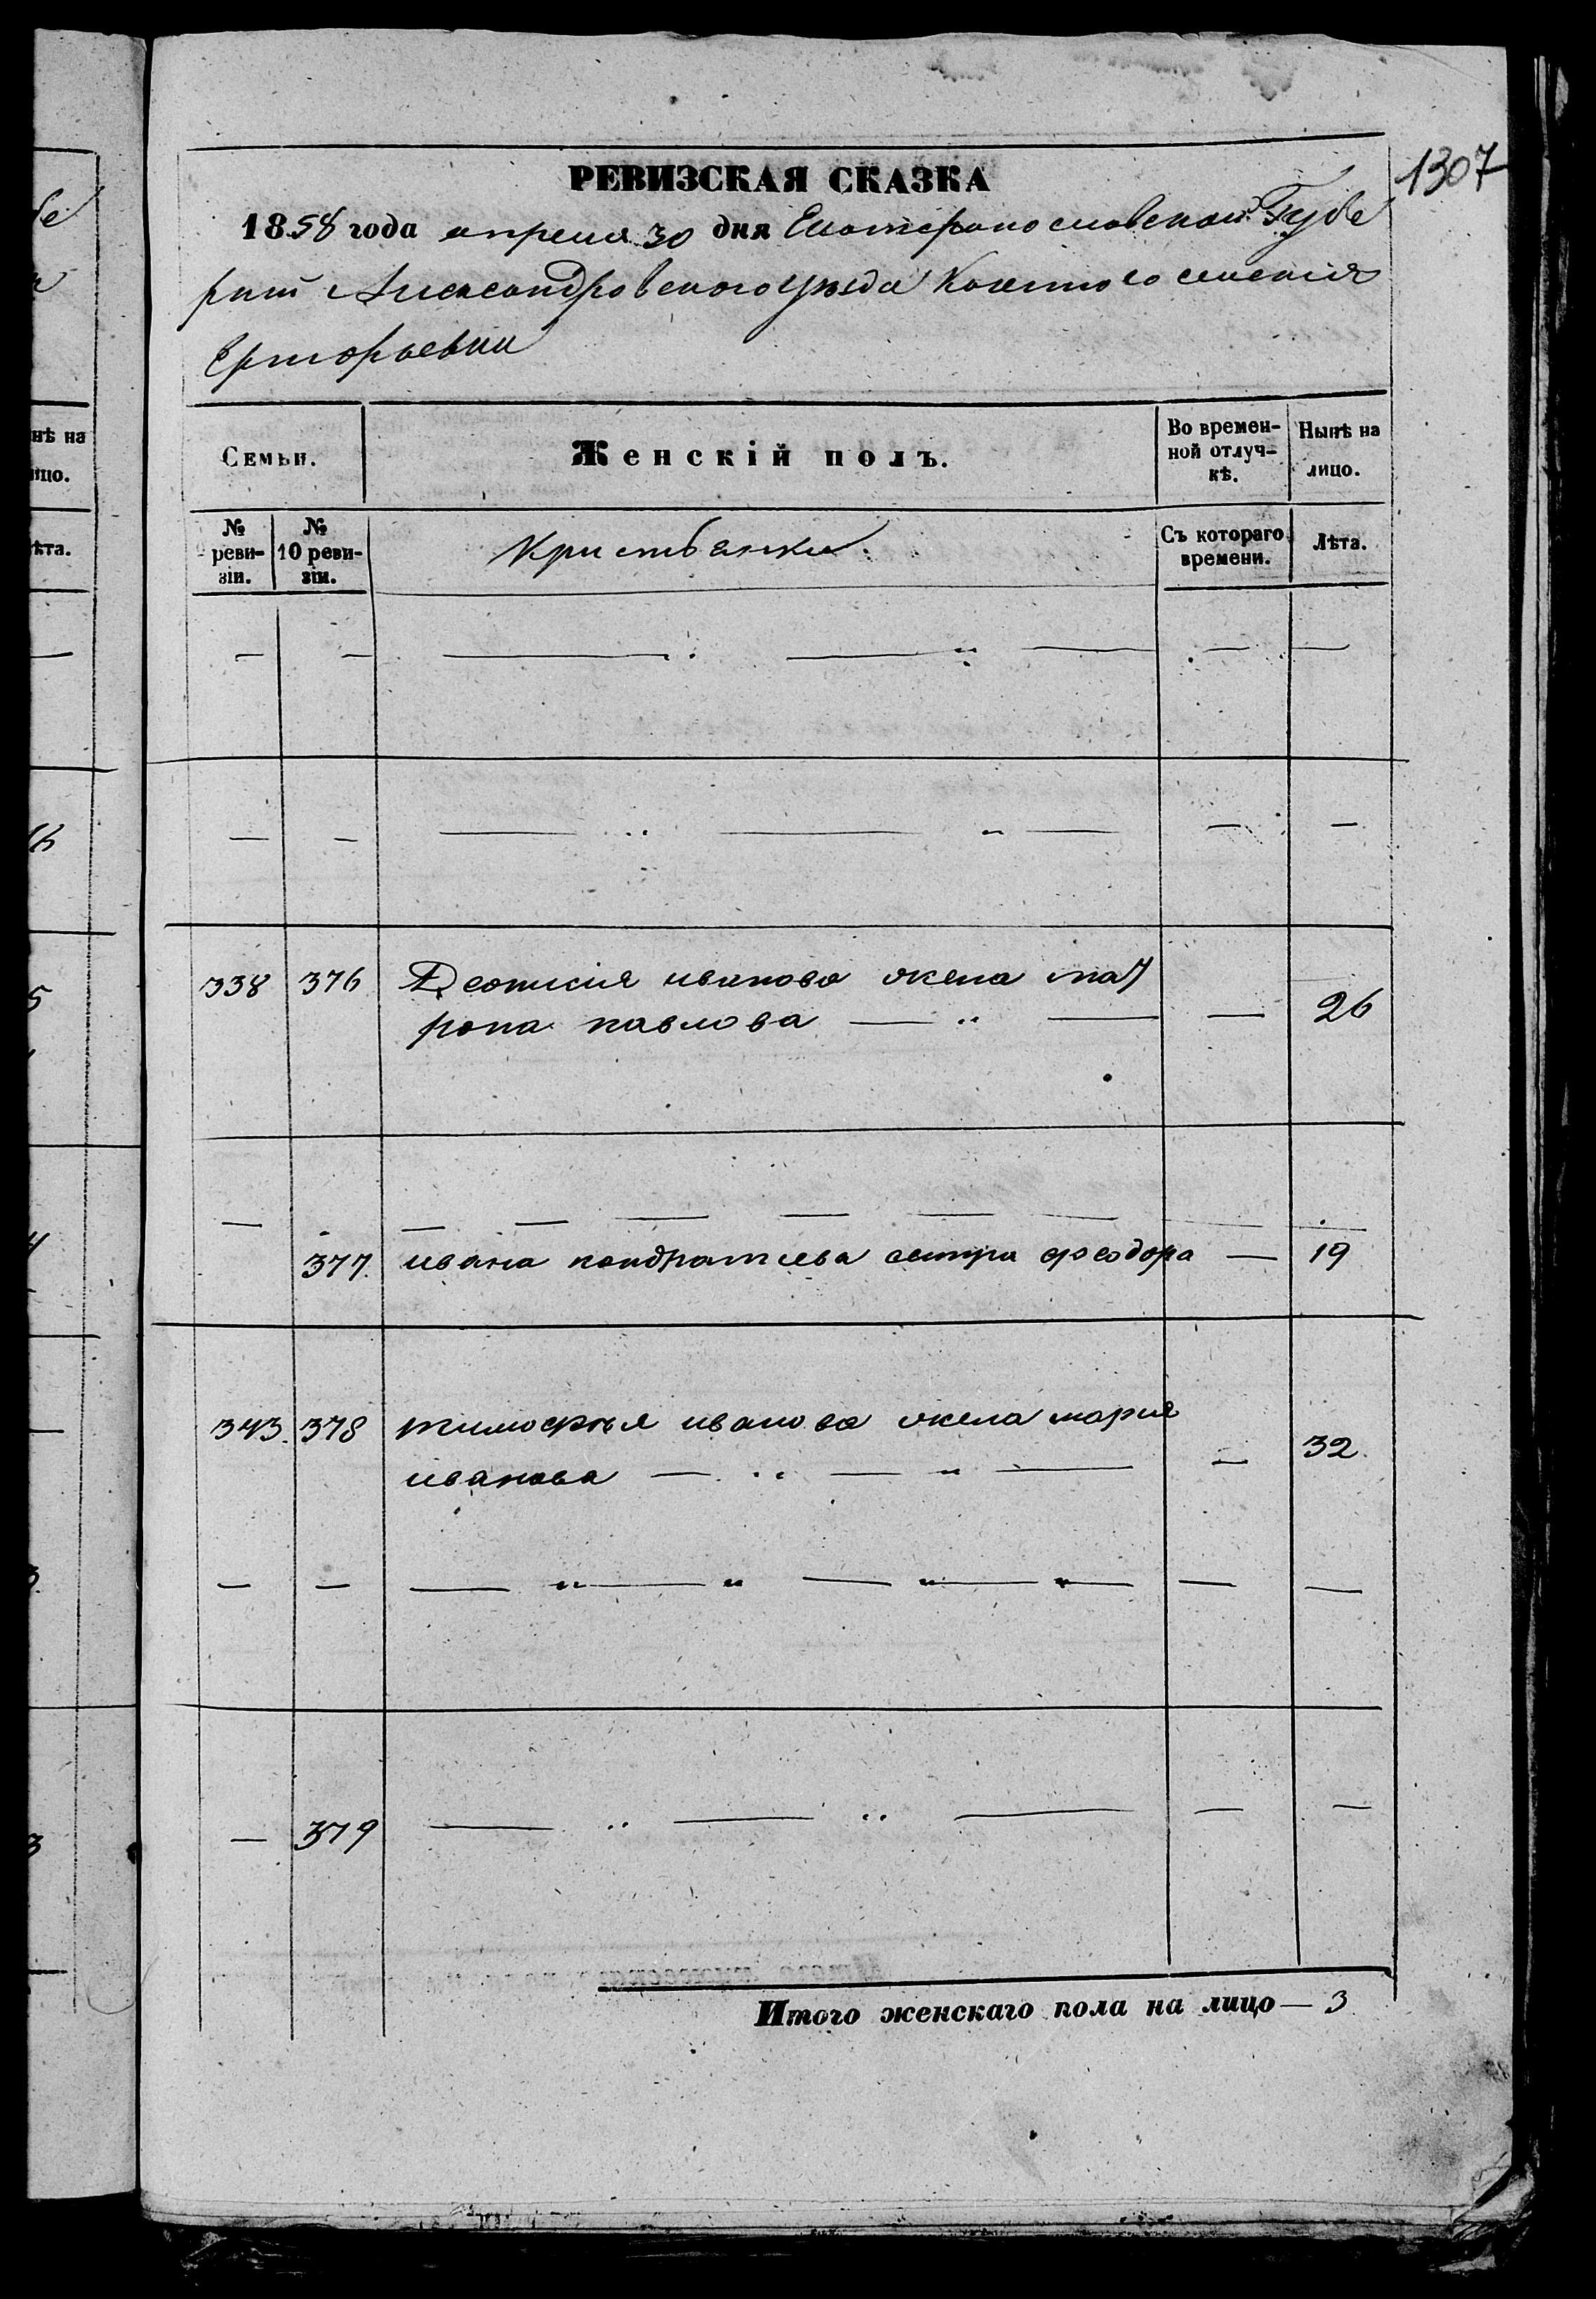 1307
РЕВИЗСКАЯ СКАЗКА
1858 года апреля 30 дня Екатеринославской Губе
рнии Александровского уезда Казенного селения
Григорьевки
Семьи.
Женскій полъ.
Во времен-
ной отлуч-
кѣ.
Нынѣ на
лицо.
№
реви-
зіи.
№
10 реви-
зіи.
Кристьянки
Съ котораго
времени.
Лѣта.
338 376 Деонисия иванова жена мат
рона павлова — 26
377 ивана кондратиева сестра феодора — 19
343 378 тимофѣя иванова жена мария
иванова — 32
— 379
Итого женскаго пола на лицо — 3
нѣ на
ицо.
ѣта.